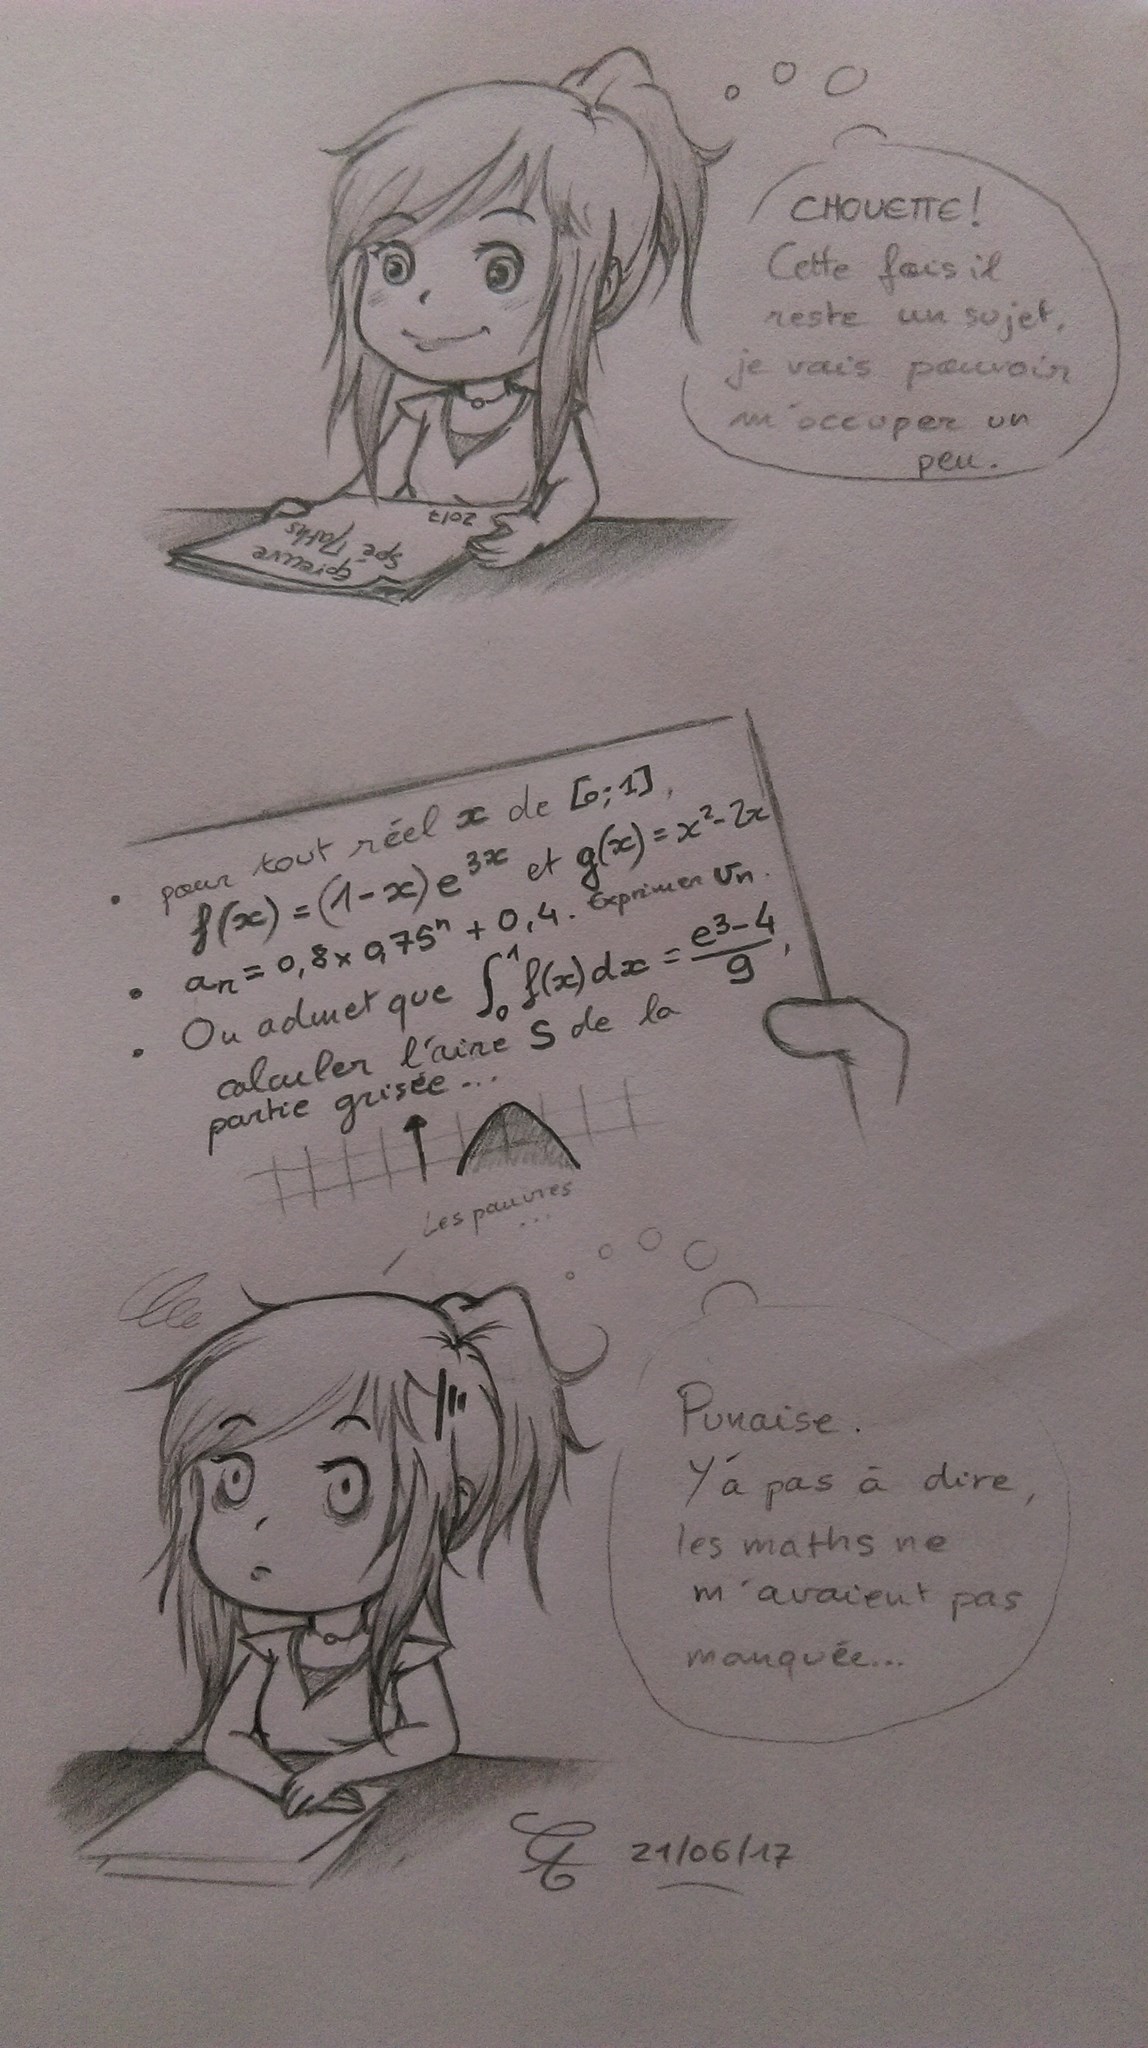 CHOUETTE!
Cette fois il
reste un sujet,
je vais pouvoir
m'occuper un
peu.
2017
Epreuve
Spé Maths
• pour tout réel x de [0;1],
f(x) = (1-x)e^{3x} et g(x) = x²-2x
• aₙ = 0,8 x 0,75ⁿ + 0,4. Exprimer Uₙ.
• On admet que ∫₀¹ f(x)dx = (e³-4)/9,
calculer l'aire S de la
partie grisée...
Les pauvres
...
Punaise.
Y'à pas à dire,
les maths ne
m'avaient pas
manquée...
21/06/17